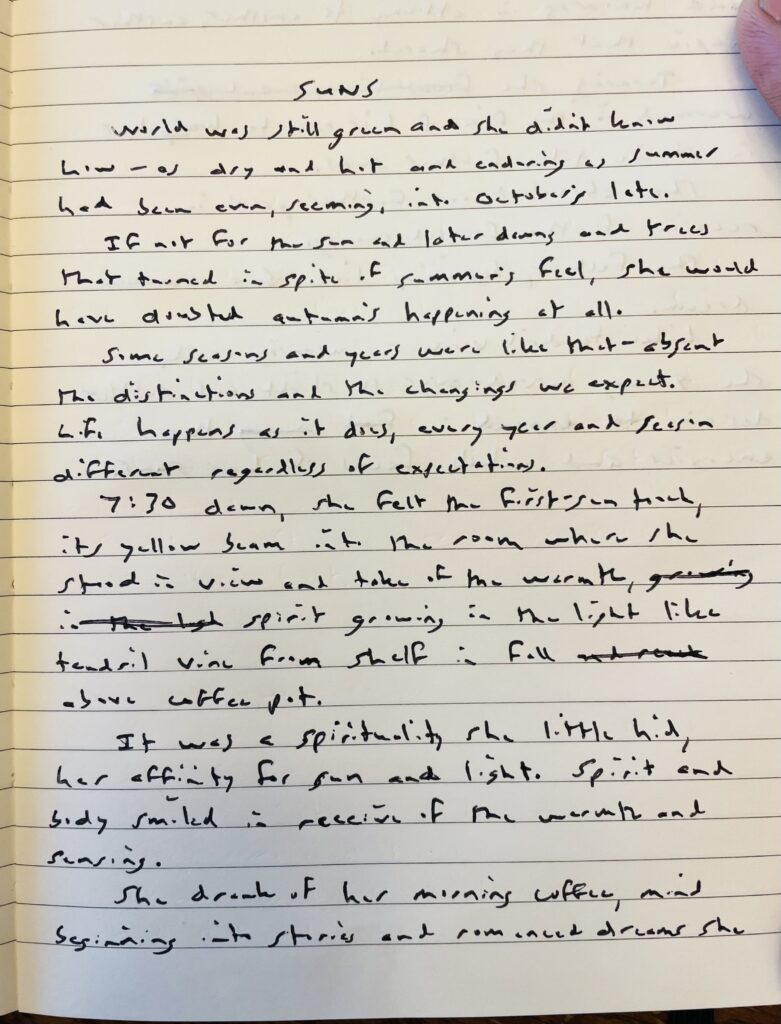 SUNS
World was still green and she didn't know
how – as dry and hot and enduring as summer
had been even, seeming, into October's late.
If not for the sun and later dawns and trees
that turned in spite of summer's feel, she would
have doubted autumn's happening at all.
Some seasons and years were like that – absent
the distinctions and the changings we expect.
Life happens as it does, every year and season
different regardless of expectations.
7:30 dawn, she felt the first-sun touch,
its yellow beam into the room where she
stood in view and take of the warmth, growing
in the light spirit growing in the light like
tendril vine from shelf in fall and reach
above coffee pot.
It was a spirituality she little hid,
her affinity for sun and light. Spirit and
body smiled in receive of the warmth and
sensing.
She drank of her morning coffee, mind
beginning into stories and romanced dreams she